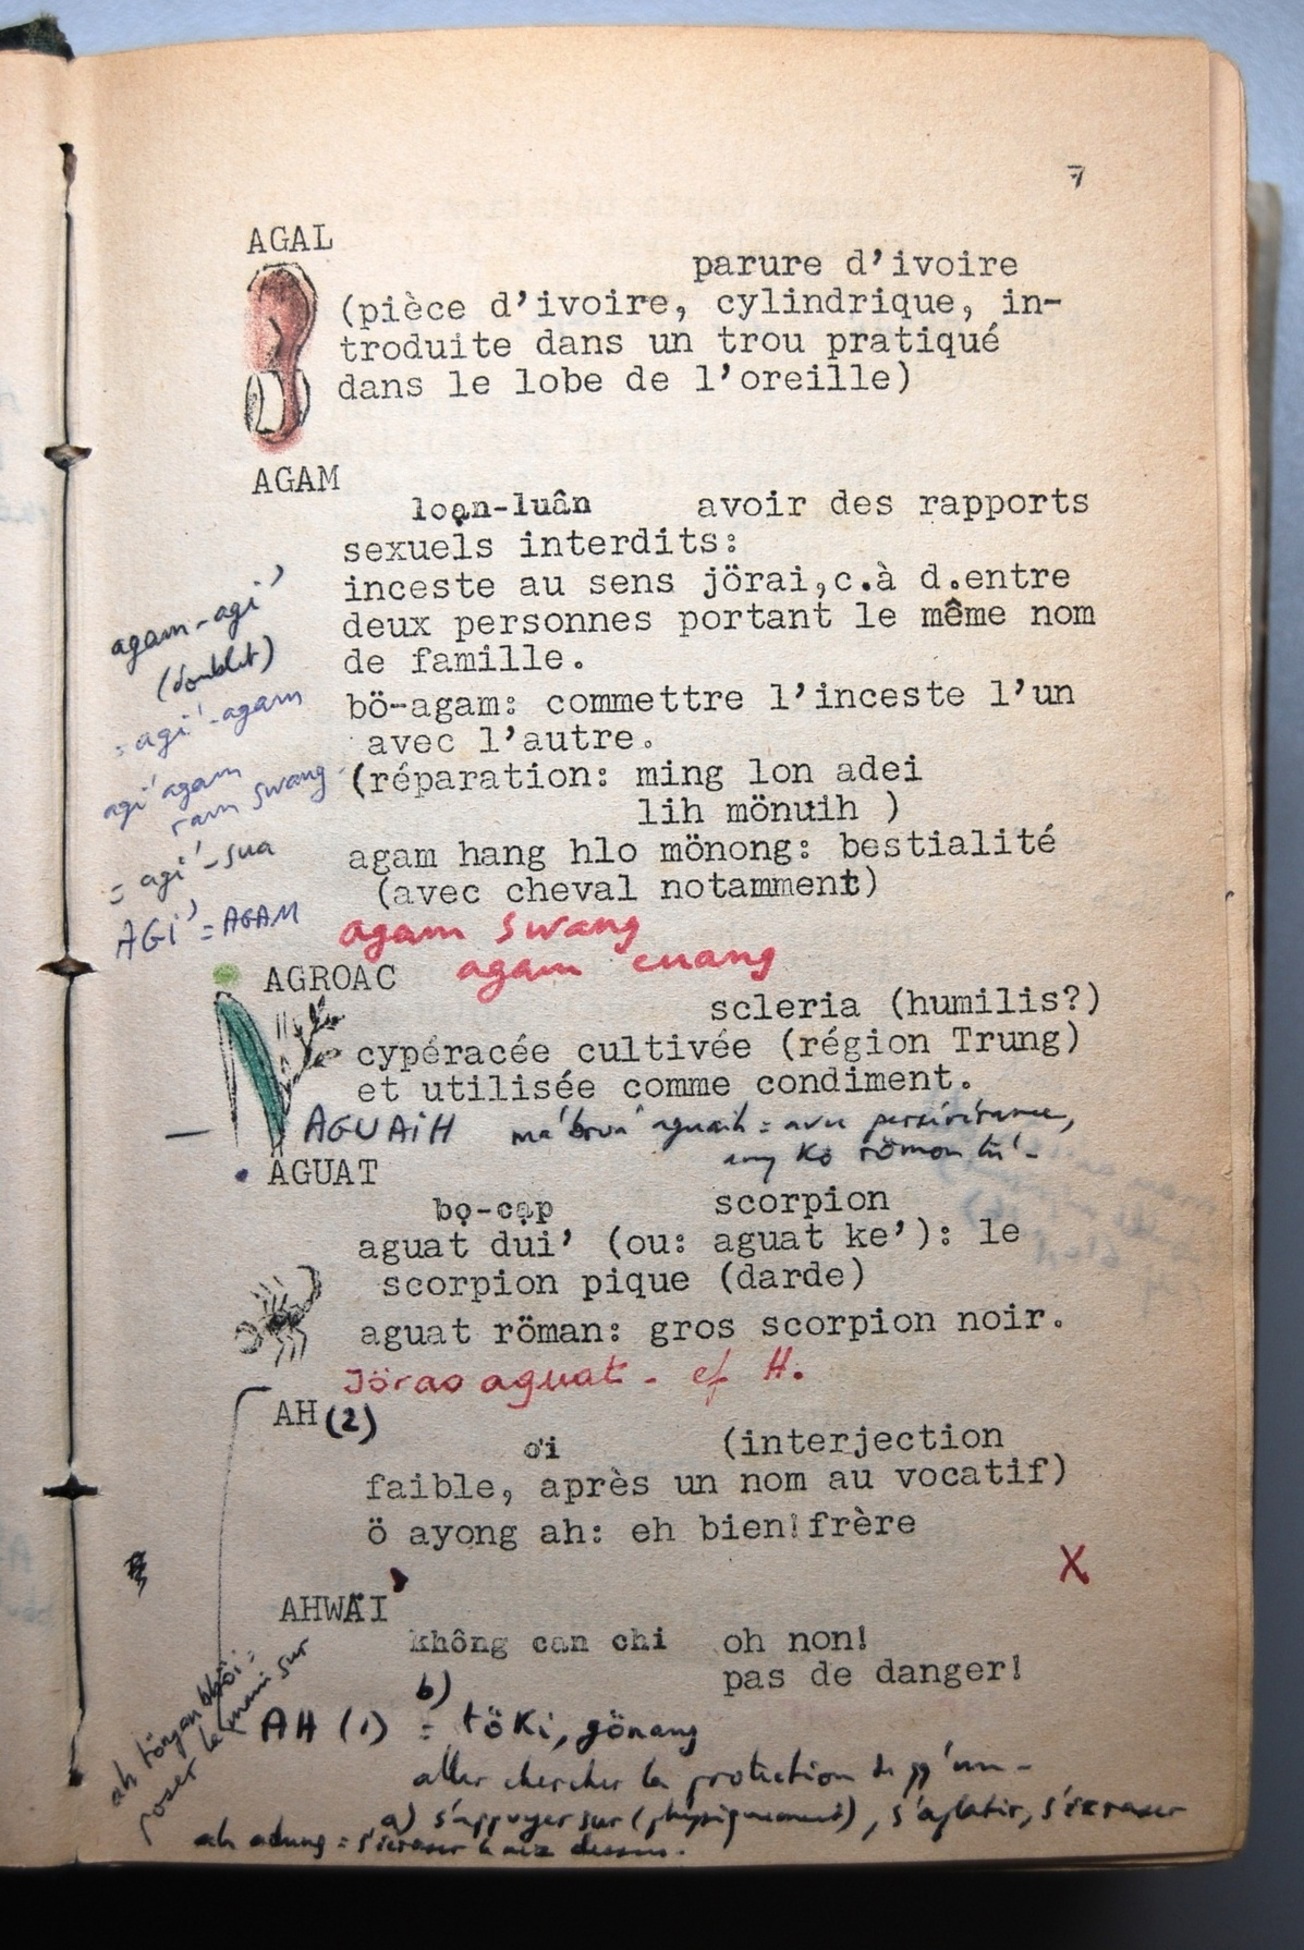 7
AGAL
parure d'ivoire
(pièce d'ivoire, cylindrique, in-
troduite dans un trou pratiqué
dans le lobe de l'oreille)
AGAM
loạn-luân avoir des rapports
sexuels interdits:
inceste au sens jörai,c.à d.entre
deux personnes portant le même nom
de famille.
bö-agam: commettre l'inceste l'un
avec l'autre.
(réparation: ming lon adei
lih mönuih )
agam hang hlo mönong: bestialité
(avec cheval notamment)
agam-agi'
(doublet)
= agi'-agam
agi' agam
ram swang
= agi'-sua
AGI' = AGAM
agam swang
agam cuang
AGROAC
scleria (humilis?)
cypéracée cultivée (région Trung)
et utilisée comme condiment.
AGUAIH aguaih = avec persévérance,
ang Kö römon
ÄGUAT
bọ-cạp scorpion
aguat dui' (ou: aguat ke'): le
scorpion pique (darde)
aguat röman: gros scorpion noir.
Jörao aguat - cf H.
AH (2)
ơi (interjection
faible, après un nom au vocatif)
ö ayong ah: eh bien!frère
X
AHWĂI'
không can chi oh non!
pas de danger!
ah töngan
poser la main sur
b)
AH (1) = töKi, gönang
aller chercher la protection de qq'un-
a) s'appuyer sur (physiquement), s'aplatir, s'écraser
ah adung = s'écraser le nez dessus.